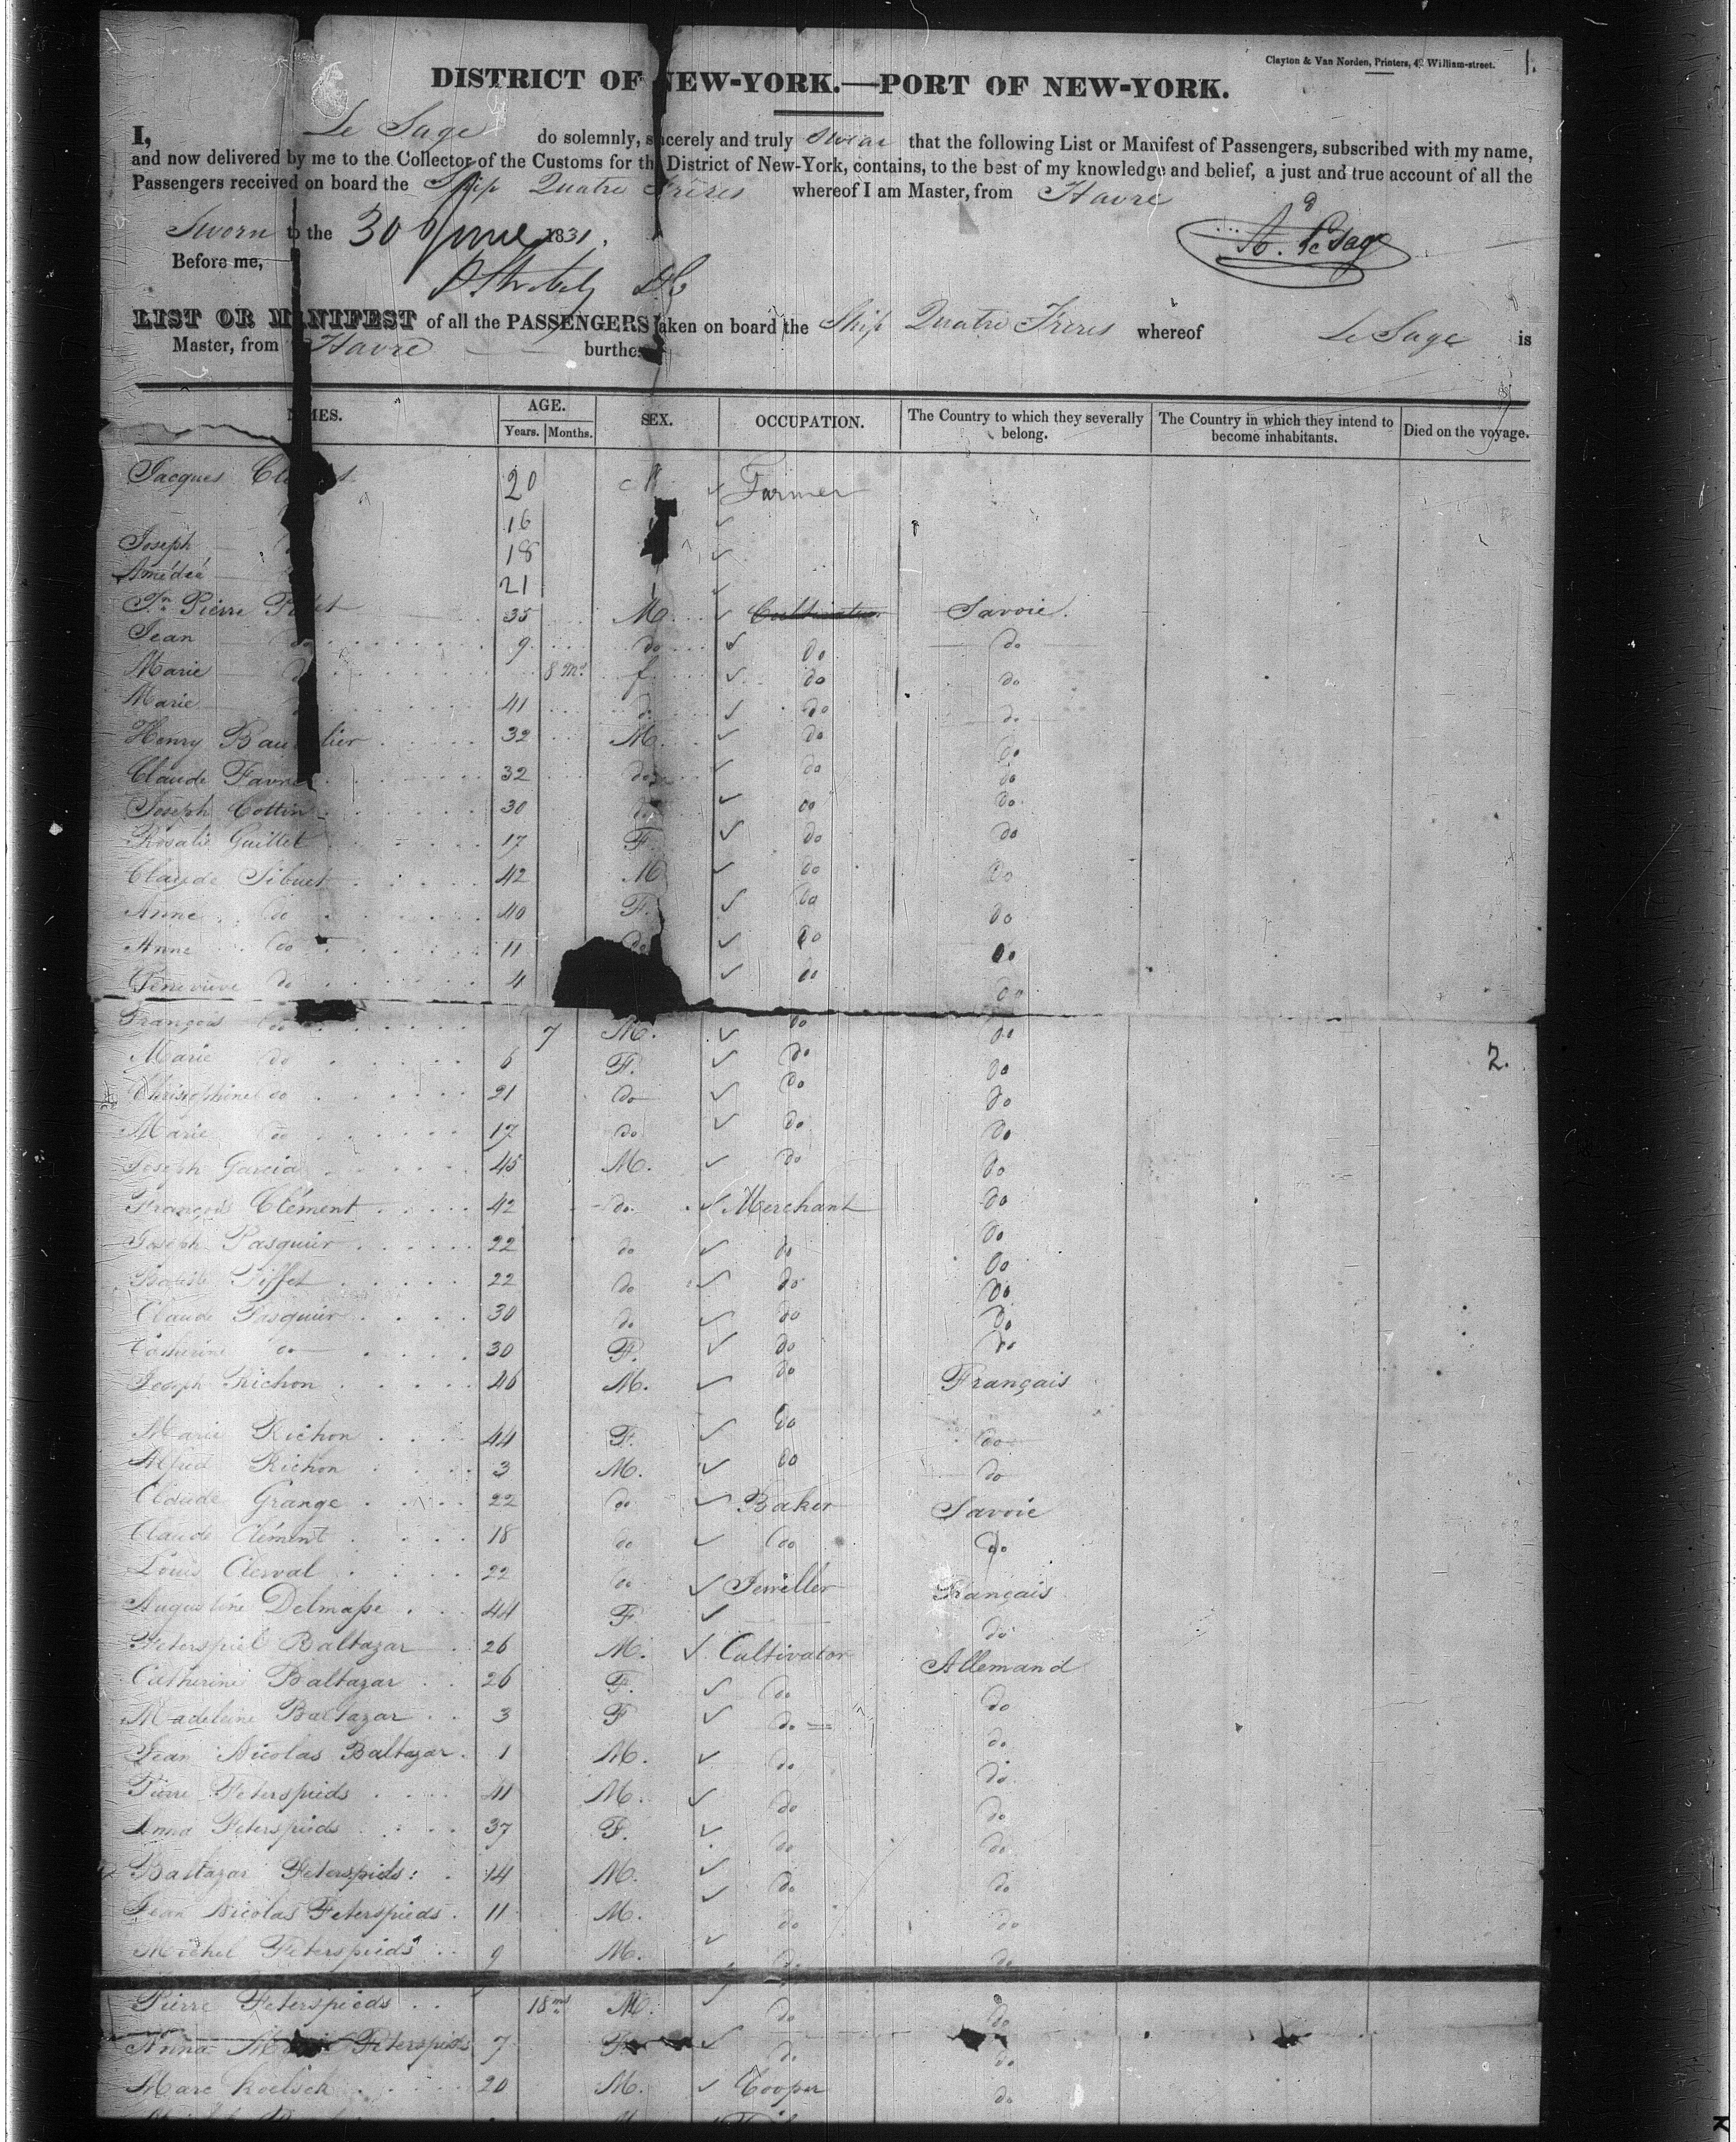 Clayton & Van Norden, Printers, 42 William-street. 1.
DISTRICT OF NEW-YORK.—PORT OF NEW-YORK.
I, Le Sage do solemnly, sincerely and truly swear that the following List or Manifest of Passengers, subscribed with my name,
and now delivered by me to the Collector of the Customs for the District of New-York, contains, to the best of my knowledge and belief, a just and true account of all the
Passengers received on board the Ship Quatre Freres whereof I am Master, from Havre
Sworn to the 30 June 1831.
A. Le Sage
Before me,
LIST OR MANIFEST of all the PASSENGERS taken on board the Ship Quatre Freres whereof Le Sage is
Master, from Havre burthen
NAMES. AGE. SEX. OCCUPATION. The Country to which they severally belong. The Country in which they intend to become inhabitants. Died on the voyage.
Years. Months.
Jacques 20 Farmer
16
Joseph 18
Amédée 21
Jn Pierre 35 M Cultivator Savoie.
Jean do 9 do do do
Marie do 8 ms f do do
Marie 41 do do do
Henry 32 M do do
Claude Favre 32 do do do
Joseph Cottin 30 do do do
Rosalie Guillet 17 F do do
Claude Sibuet 42 M do do
Anne do 40 F. do do
Anne do 11 do do do
Genevieve do 4 do do
François do 7 M. do do
2.
Marie do 6 F. do do
Christophine do 21 do do do
Marie do 17 do do do
Joseph Garcia 45 M. do do
François Clément 42 do Merchant do
Joseph Pasquier 22 do do do
Piffet 22 do do do
Claude Pasquier 30 do do do
Catherine do 30 F. do do
Joseph Richon 46 M. do Français
Marie Richon 44 F. do do
Alfred Richon 3 M. do do
Claude Grange 22 do Baker Savoie
Claude Clément 18 do do do
Louis Clerval 22 do Jeweller Français
Augustine Delmasse 44 F do
Feterspiel Baltazar 26 M. Cultivator Allemand
Catherine Baltazar 26 F. do do
Madeleine Baltazar 3 F do do
Jean Nicolas Baltazar 1 M. do do
Pierre Feterspieds 41 M. do do
Anna Feterspieds 37 F. do do
Baltazar Feterspieds 14 M. do do
Jean Nicolas Feterspieds 11 M. do do
Michel Feterspieds 9 M. do do
Pierre Feterspieds 18 ms M. do do
Anna Feterspieds 7 F. do do
Marc Koelsch 20 M. Cooper do